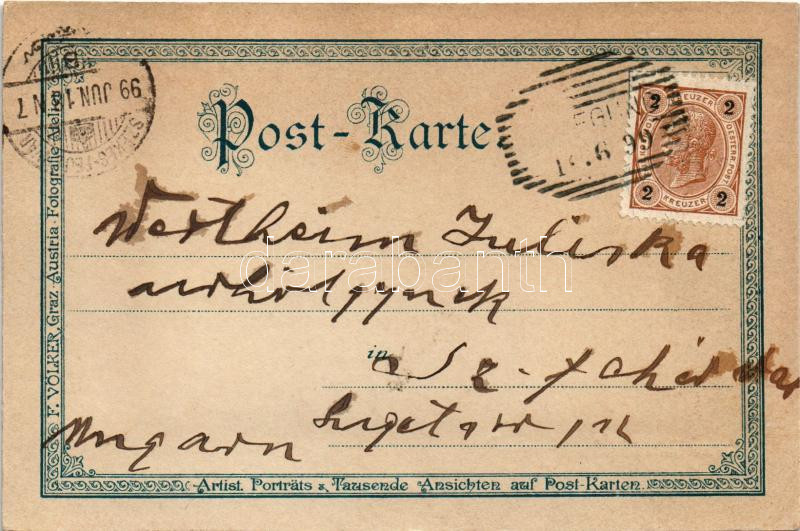 Post-Karte
2 KREUZER 2
OESTERR. POST
2 KREUZER 2
99 JUN.1 N 7
Wertheim Juliska
urhölgynek
in
Sz-fehérvár
Ungarn
F. VÖLKER, Graz, Austria · Fotografie Atelier
Artist. Porträts & Tausende Ansichten auf Post-Karten.
darabanth